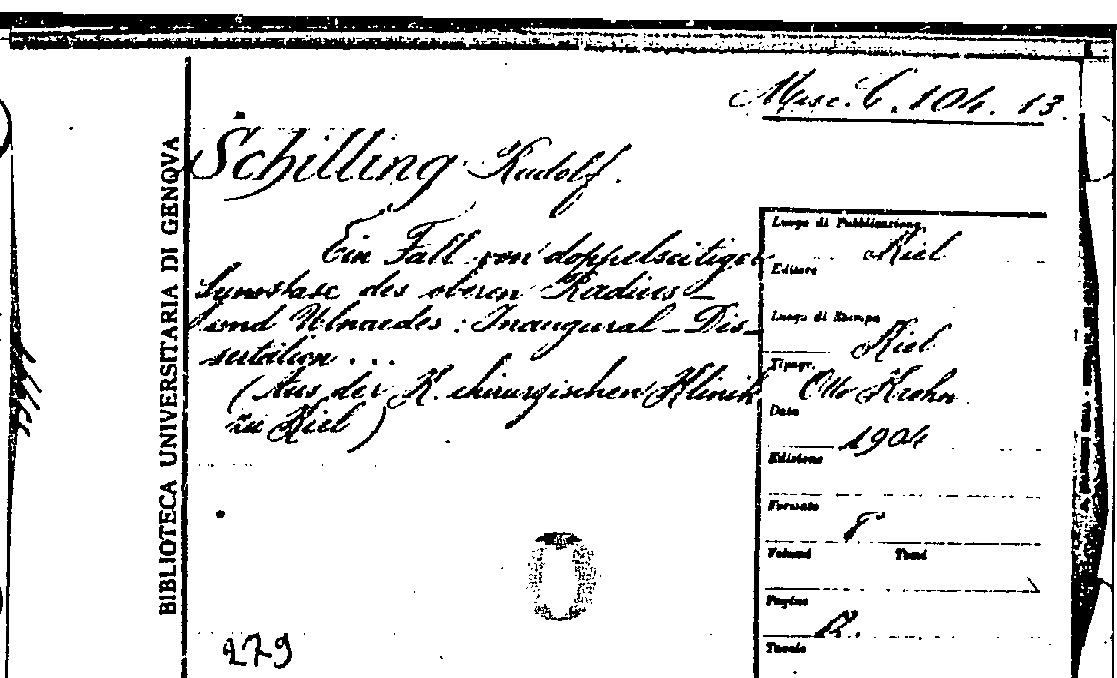 Misc. C. 104. 13.
BIBLIOTECA UNIVERSITARIA DI GENOVA
Schilling Rudolf.
Ein Fall von doppelseitiger
Synostase des oberen Radius-
und Ulnaedes : Inaugural-Dis-
sertation ...
(Aus der K. chirurgischen Klinik
zu Kiel)
Luogo di Pubblicazione
Kiel
Editore
Luogo di Stampa
Kiel
Tipogr.
Otto Krohn
Data
1904
Edizione
Formato
8°
Volumi Tomi
Pagine
Tavole
0
279